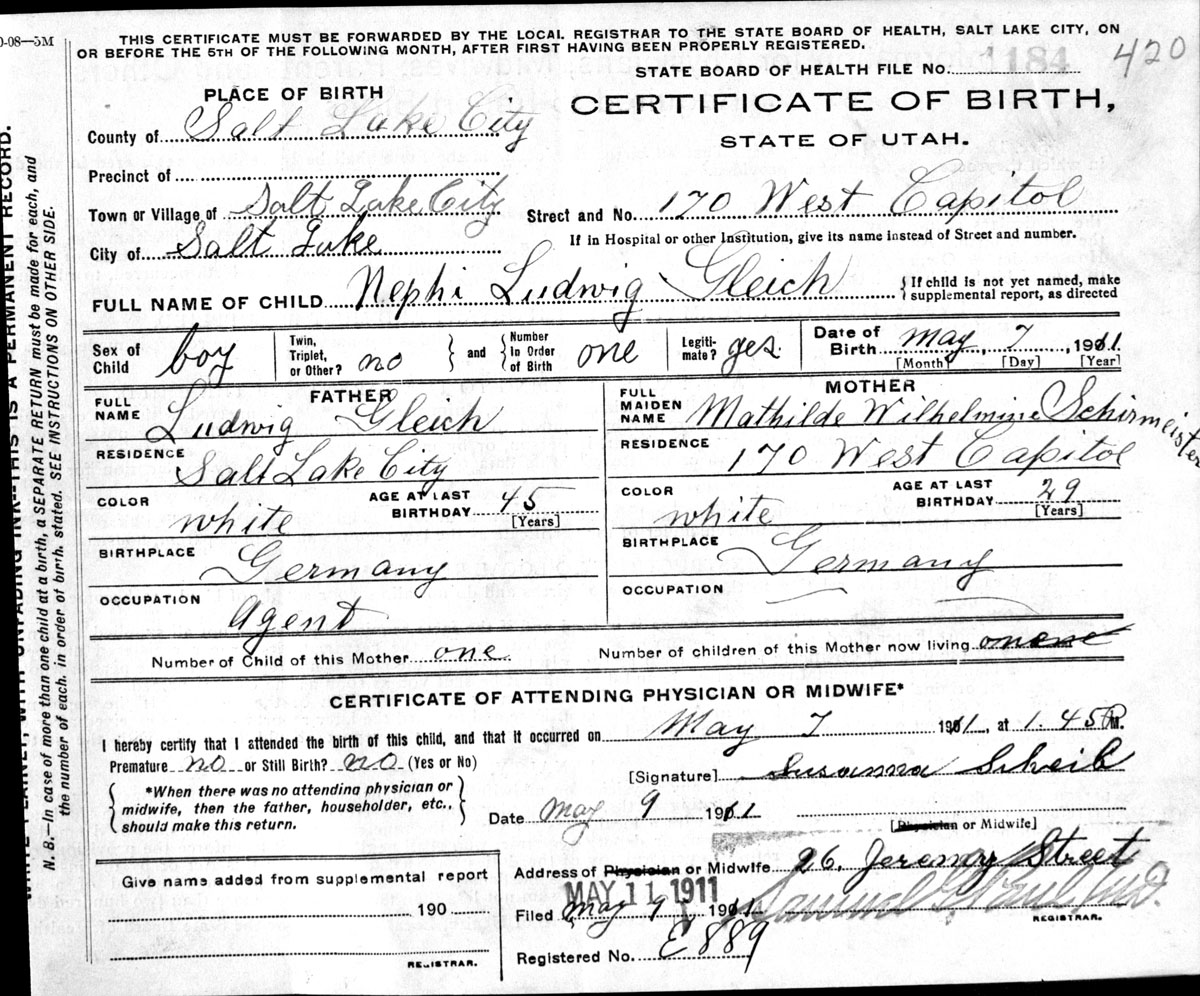 0-08—5M
THIS CERTIFICATE MUST BE FORWARDED BY THE LOCAL REGISTRAR TO THE STATE BOARD OF HEALTH, SALT LAKE CITY, ON
OR BEFORE THE 5TH OF THE FOLLOWING MONTH, AFTER FIRST HAVING BEEN PROPERLY REGISTERED.
STATE BOARD OF HEALTH FILE No. 1184 420
PLACE OF BIRTH
CERTIFICATE OF BIRTH,
STATE OF UTAH.
County of Salt Lake City
Precinct of
Town or Village of Salt Lake City
Street and No. 170 West Capitol
City of Salt Lake
If in Hospital or other Institution, give its name instead of Street and number.
FULL NAME OF CHILD Nephi Ludwig Gleich
{If child is not yet named, make
supplemental report, as directed
Sex of Child boy
Twin, Triplet, or Other? no
and
Number in Order of Birth one
Legiti-mate? yes.
Date of Birth May, 7, 1911.
[Month] [Day] [Year]
FATHER
FULL NAME Ludwig Gleich
RESIDENCE Salt Lake City
COLOR white
AGE AT LAST BIRTHDAY 45
[Years]
BIRTHPLACE Germany
OCCUPATION Agent
MOTHER
FULL MAIDEN NAME Mathilde Wilhelmine Schirmeister
RESIDENCE 170 West Capitol
COLOR white
AGE AT LAST BIRTHDAY 29
[Years]
BIRTHPLACE Germany
OCCUPATION
Number of Child of this Mother one.
Number of children of this Mother now living one
CERTIFICATE OF ATTENDING PHYSICIAN OR MIDWIFE*
I hereby certify that I attended the birth of this child, and that it occurred on May 7 1911, at 1.45 P.M.
Premature no or Still Birth? no (Yes or No)
[Signature] Susanna Scheib
*When there was no attending physician or
midwife, then the father, householder, etc.,
should make this return.
Date May 9 1911
[Physician or Midwife]
Address of Physician or Midwife 26. Jeremy Street
MAY 11 1911
Filed May 9 1911
Samuel G. Paul, M.D.
REGISTRAR.
Registered No. E889
Give name added from supplemental report
190
REGISTRAR.
WRITE PLAINLY, WITH UNFADING INK—THIS IS A PERMANENT RECORD.
N. B.—In case of more than one child at a birth, a SEPARATE RETURN must be made for each, and
the number of each, in order of birth, stated. SEE INSTRUCTIONS ON OTHER SIDE.